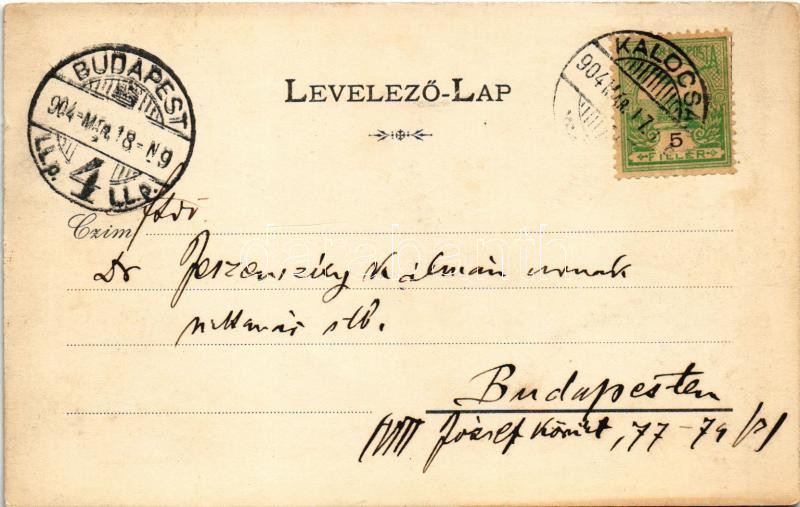 LEVELEZŐ-LAP
BUDAPEST
904-MÁR.18-N9
4
I.I.p. I.I.p.
KALOCSA
904 MÁR. 17.
POSTA
5
FILLÉR
Czim
Dr Jeszenszky Kálmán urnak
stb.
Budapesten
VIII József körút, 77-79
darabanth